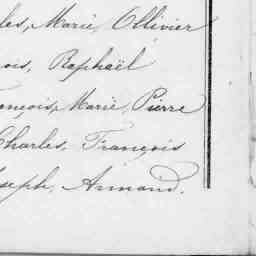 les, Marie, Ollivier
ois, Raphaël
ançois, Marie, Pierre
Charles, François
seph, Armand.